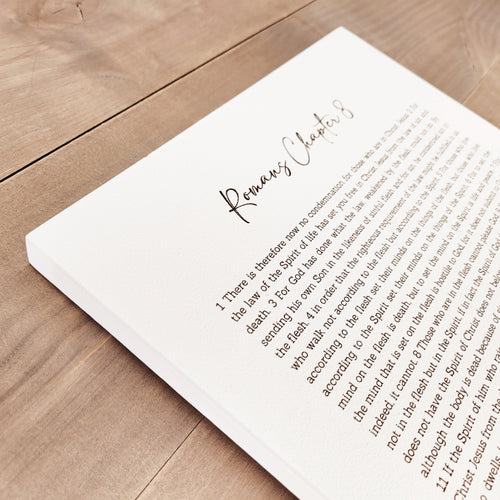 Romans Chapter 8
1 There is therefore now no condemnation for those who are in Christ Jesus. 2 For
the law of the Spirit of life has set you free in Christ Jesus from the law of sin and
death. 3 For God has done what the law, weakened by the flesh, could not do. By
sending his own Son in the likeness of sinful flesh and for sin, he condemned sin in
the flesh, 4 in order that the righteous requirement of the law might be fulfilled in us,
who walk not according to the flesh but according to the Spirit. 5 For those who live
according to the flesh set their minds on the things of the flesh, but those who live
according to the Spirit set their minds on the things of the Spirit. 6 For to set the
mind on the flesh is death, but to set the mind on the Spirit is life and
the mind that is set on the flesh is hostile to God, for it does not
indeed, it cannot. 8 Those who are in the flesh cannot
not in the flesh but in the Spirit, if in fact the
does not have the Spirit of Christ does not
although the body is dead because of
11 If the Spirit of him who
Christ Jesus from
dwells